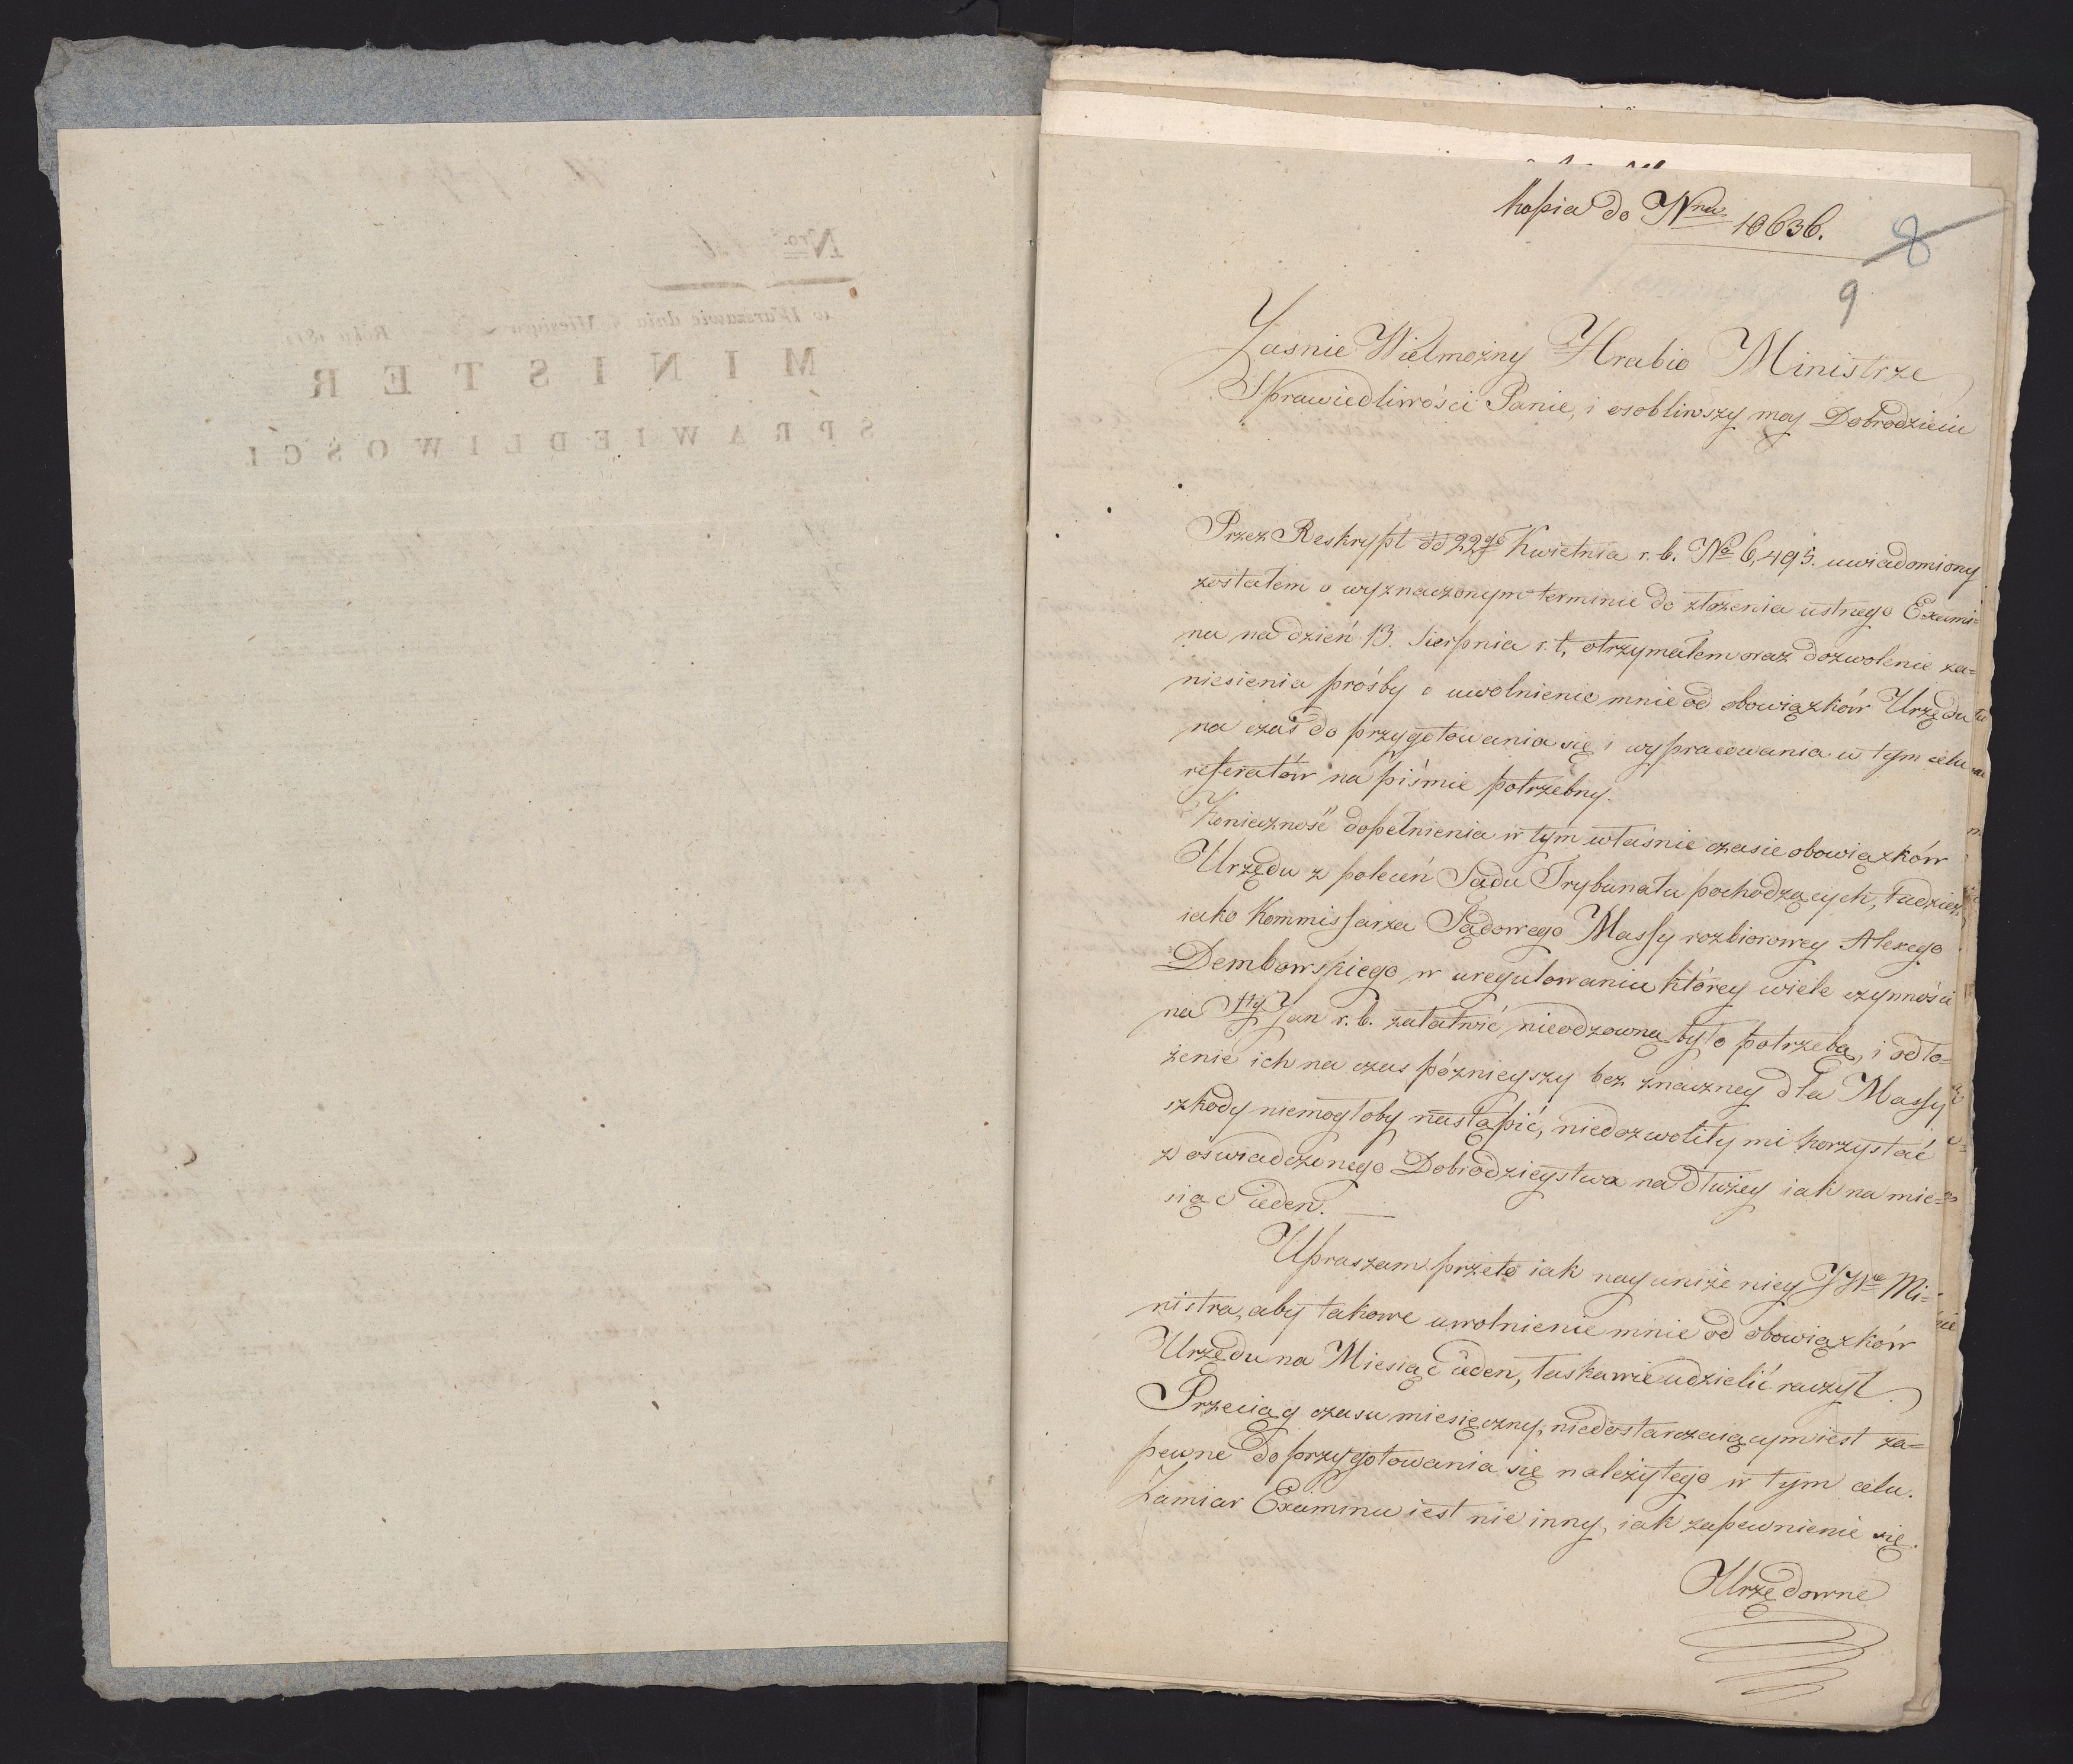 Kopia do Nru 10636.
8
9
Jaśnie Wielmożny Hrabio Ministrze
Sprawiedliwości Panie, i osobliwszy moy Dobrodzieiu
Przez Reskrypt od 22go Kwietnia r. b. No 6,495. uwiadomiony
zostałem o wyznaczonym terminie do złożenia ustnego Exami-
nu na dzień 13. Sierpnia r. t, otrzymałem oraz dozwolenie za-
niesienia prośby o uwolnienie mnie od obowiązków Urzędu
na czas do przygotowania się i wypracowania w tym celu
referatów na piśmie potrzebny.
Konieczność dopełnienia w tym właśnie czasie obowiązków
Urzędu z poleceń Sądu Trybunału pochodzących, tudzież
iako Kommissarza Sądowego Massy rozbiorowey Alexego
Dembowskiego w uregulowaniu którey wiele czynności
na Sty Jan r. b. załatwić nieodzowną było potrzebą, i odło-
żenie ich na czas póznieyszy bez znaczney dla Massy
szkody niemogłoby nastąpić, niedozwoliły mi korzystać
z oświadczonego Dobrodzieystwa na dłużey iak na mie-
siąc ieden. —
Upraszam przeto iak nayuniżeniey JWo Mi-
nistra, aby takowe uwolnienie mnie od obowiązków
Urzędu na Miesiąc ieden, łaskawie udzielić raczył.
Przeciąg czasu miesięczny, niedostarczaiącym iest za-
pewne do przygotowania się należytego w tym celu.
Zamiar Examinu iest nie inny, iak zapewnienie się
Urzędowne
Nro.
w Warszawie dnia Miesiąca Roku 181
MINISTER
SPRAWIEDLIWOŚCI